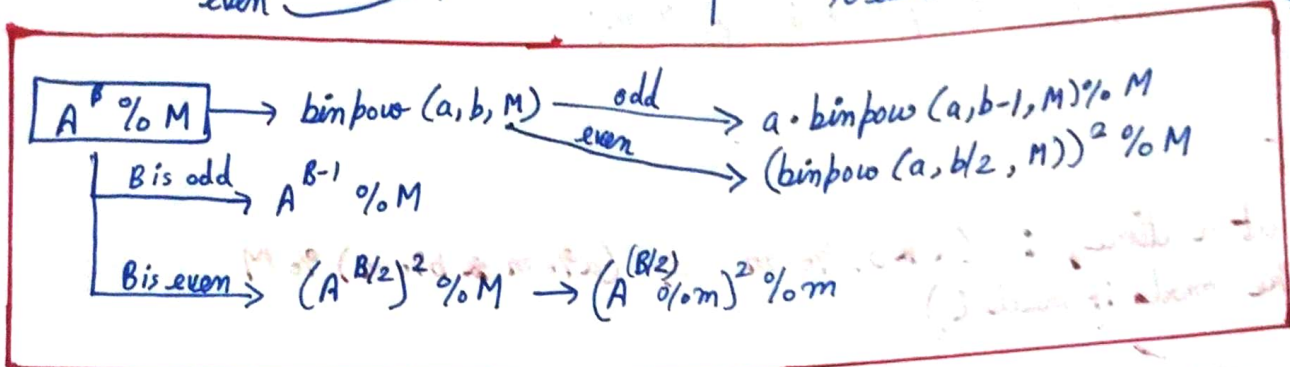 even
A^B % M → binpow (a, b, M) odd → a · binpow (a, b-1, M) % M
even → (binpow (a, b/2, M))² % M
B is odd → A^(B-1) % M
B is even → (A^(B/2))² % M → (A^(B/2) % m)² % m